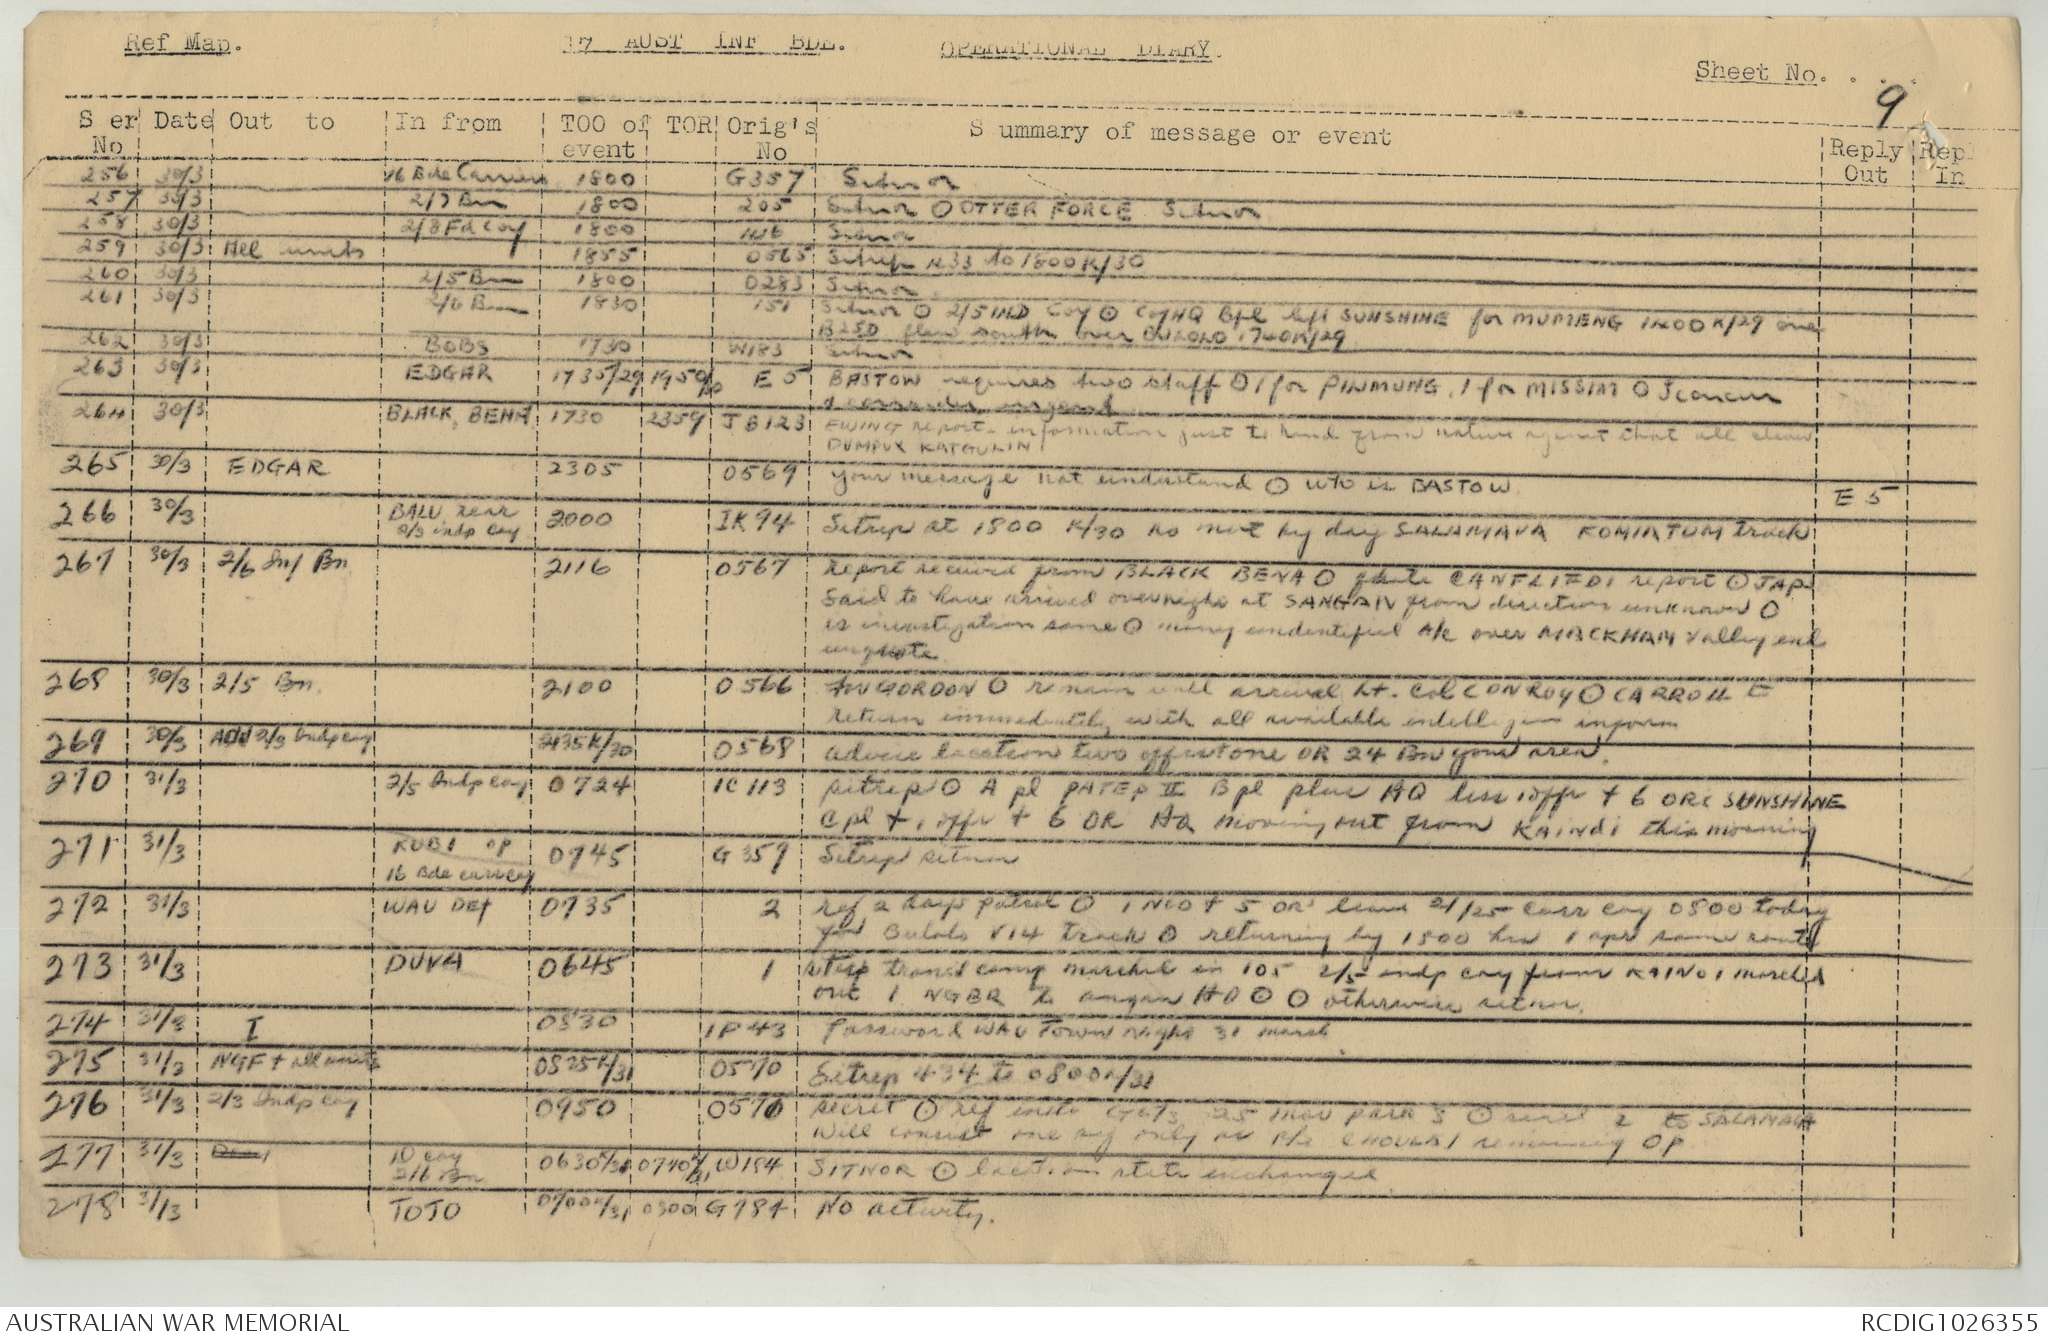 Ref Map. 17 AUST INF BDE. OPERATIONAL DIARY.
Sheet No. . . . .
9
S er Date Out to In from TOO of TOR Orig's S ummary of message or event
No event No Reply Repl
Out In
256 30/3 16 Bde Carriers 1800 G357 Sitnor
257 30/3 2/7 Bn 1800 205 Sitnor ⊙ OTTER FORCE Sitnor
258 30/3 2/8 Fd Coy 1800 Sitnor
259 30/3 All units 1855 0565 Sitrep to 1800K/30
260 30/3 2/5 Bn 1800 0283 Sitnor
261 30/3 2/6 Bn 1830 151 Sitnor ⊙ 2/5 IND Coy ⊙ Coy HQ Bpl left SUNSHINE for MUMENG 1200K/29 one
B25D flew south over BULOLO 1740K/29
262 30/3 BOBS 1730 W183 Sitnor
263 30/3 EDGAR 1735/29 1950/30 E 5 BASTOW requires two staff ⊙ 1 for PINMUNG, 1 for MISSIM ⊙ I concur
& consider urgent
264 30/3 BLACK, BENA 1730 2359 JB123 EWING report information just to hand from native agent that all clear
DUMPUX KAIGULIN
265 30/3 EDGAR 2305 0569 your message not understand ⊙ who is BASTOW
E 5
266 30/3 BALU rear 2000 IK94 Sitrep at 1800 K/30 no mov by day SALAMAUA KOMIATUM track
2/3 indp coy
267 30/3 2/6 Inf Bn 2116 0567 report received from BLACK BENA ⊙ quote CANFLIEDI report ⊙ JAPS
said to have arrived overnight at SANGAN from direction unknown ⊙
is investigation same ⊙ many unidentified A/c over MARCKHAM Valley end
unquote
268 30/3 2/5 Bn. 2100 0566 for GORDON ⊙ remain until arrival Lt. Col CONROY ⊙ CARROLL to
return immediately with all available intelligence
269 30/3 Add 2/3 Indp coy 2135K/30 0568 advise location two offrs & one OR 24 Bn your area.
270 31/3 2/5 Indp coy 0724 IC113 sitrep ⊙ A pl PATEP II B pl plus HQ less 1 offr + 6 ORs SUNSHINE
C pl + 1 offr + 6 OR HQ moving out from KAINDI this morning
271 31/3 KUBI OP 0745 G 359 Sitrep sitnor
16 Bde carr coy
272 31/3 WAU Det 0735 2 ref 2 days patrol ⊙ 1 NCO + 5 OR leave 2/25 carr coy 0800 today
for Bulolo V14 track ⊙ returning by 1800 hrs 1 apr same route
273 31/3 DUVA 0645 1 transit camp marched in 105 2/5 indp coy from KAINDI marched
out 1 NGBR to HQ ⊙ ⊙ otherwise sitnor.
274 31/3 I 0830 IP 43 Password WAU Town night 31 march
275 31/3 NGF + all units 0825K/31 0570 Sitrep 434 to 0800K/31
276 31/3 2/3 Indp coy 0950 0571 secret ⊙ ref 25 mar para 3 ⊙ 2 to SALAMAUA
Will consist one only remaining OP
277 31/3 D coy 0630K/31 0740K/31 W184 SITNOR ⊙ location state exchanged
2/6 Bn
278 31/3 TOJO 0700K/31 0800 G784 No activity.
AUSTRALIAN WAR MEMORIAL RCDIG1026355